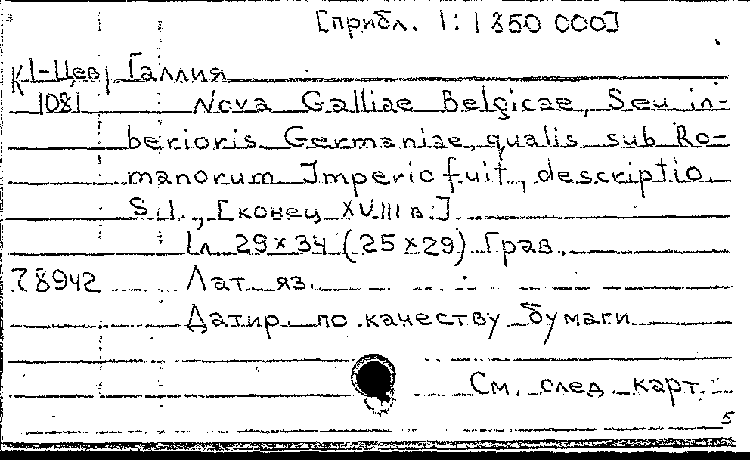 [прибл. 1:1 850 000]
К 1-Цев Галлия
1081 Nova Galliae Belgicae, Seu in-
berioris Germaniae, qualis sub Ro-
manorum Imperio fuit, descriptio.
S.l., [конец XVIII в.]
1л. 29×34 (25×29) Грав.
78942 Лат. яз.
Датир. по качеству бумаги
См. след. карт.
5